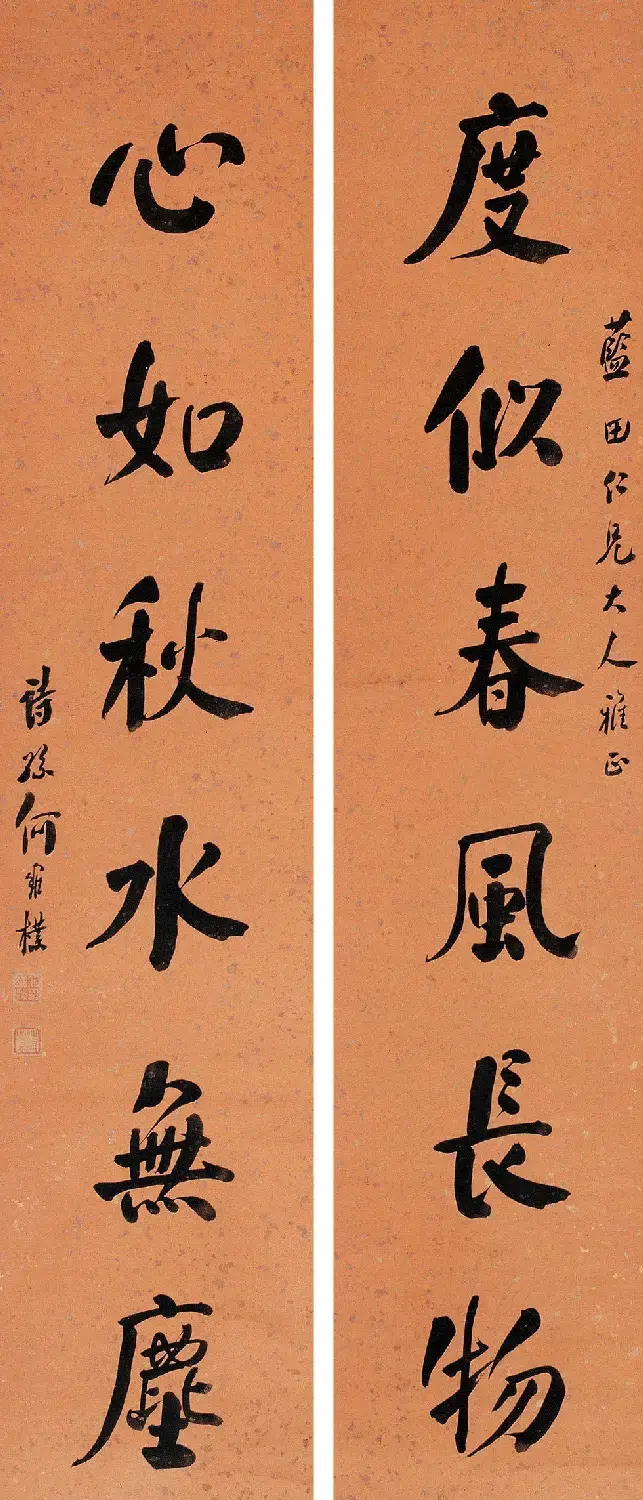 藍田仁兄大人雅正
度似春風長物
心如秋水無塵
詩孫何維樸